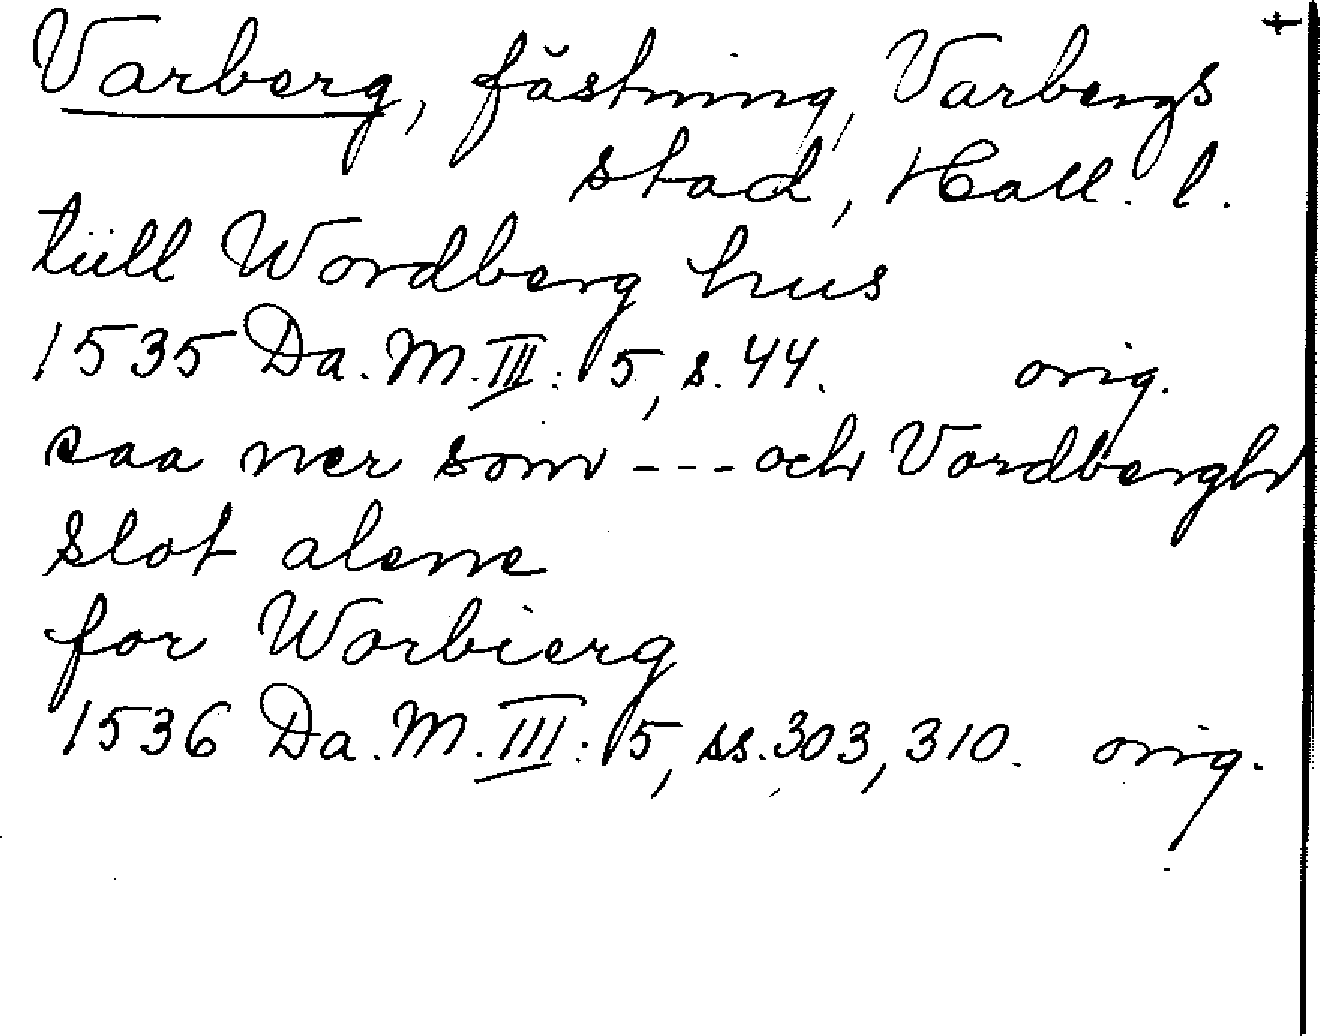 +
Varberg, fästning, Varbergs
stad, Hall. l.
tiill Wordberg hus
1535 Da. M. III: 5, s. 44. orig.
saa ner som --- och Vordbergh
slot alene
for Worbierg
1536 Da. M. III: 5, ss. 303, 310. orig.